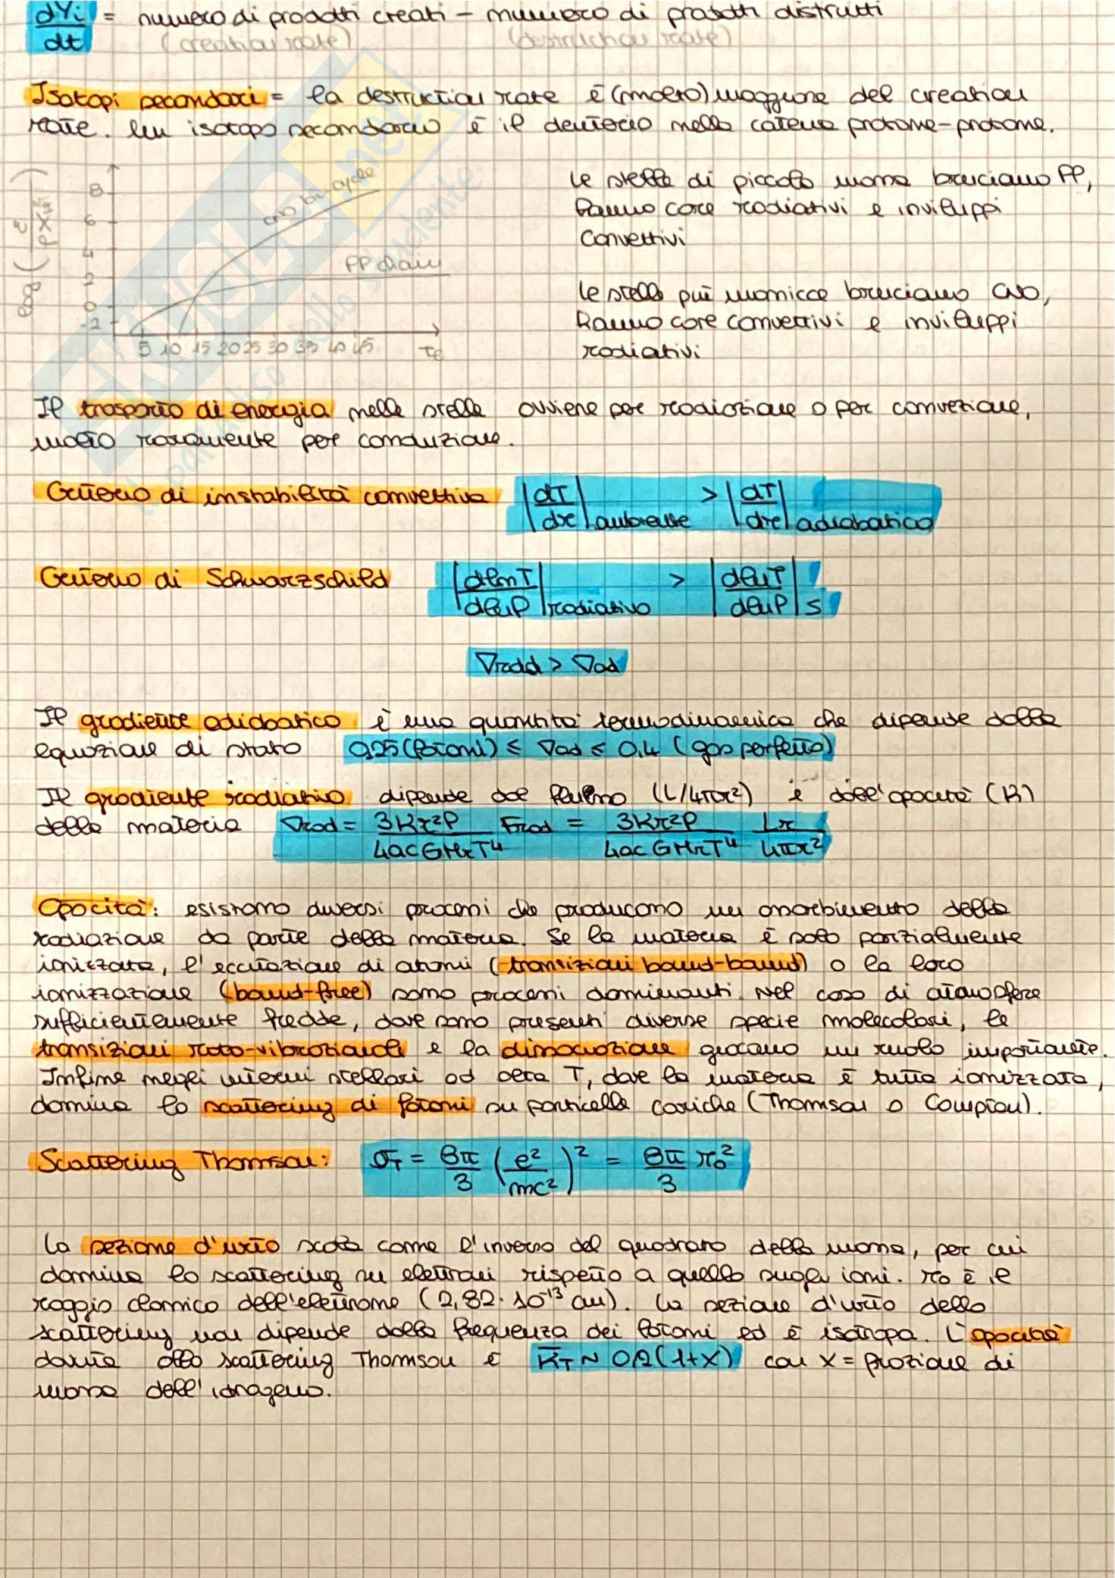 dYi/dt = numero di prodotti creati - numero di prodotti distrutti
(creation rate) (destruction rate)
Isotopi secondari = la destruction rate è (molto) maggiore del creation
rate. Un isotopo secondario è il deuterio nella catena protone-protone.
log(ε/ρX_H²)
8
6
4
2
0
-2
CNO bi-cycle
PP chain
5 10 15 20 25 30 35 40 45 T6
Le stelle di piccola massa bruciano PP,
hanno core radiativi e inviluppi
convettivi
Le stelle più massicce bruciano CNO,
hanno core convettivi e inviluppi
radiativi
Il trasporto di energia nelle stelle avviene per radiazione o per convezione,
molto raramente per conduzione.
Criterio di instabilità convettiva |dT/dr| ambiente > |dT/dr| adiabatico
Criterio di Schwarzschild |dlnT/dlnP| radiativo > |dlnT/dlnP| s
∇rad > ∇ad
Il gradiente adiabatico è una quantità termodinamica che dipende dalla
equazione di stato 0,25 (fotoni) ≤ ∇ad ≤ 0,4 (gas perfetto)
Il gradiente radiativo dipende dal flusso (L/4πr²) e dall'opacità (K)
della materia ∇rad = 3Kr²P/4acGMrT⁴ Frad = 3Kr²P/4acGMrT⁴ Lr/4πr²
Opacità: esistono diversi processi che producono un assorbimento della
radiazione da parte della materia. Se la materia è solo parzialmente
ionizzata, l'eccitazione di atomi (transizioni bound-bound) o la loro
ionizzazione (bound-free) sono processi dominanti. Nel caso di atmosfere
sufficientemente fredde, dove sono presenti diverse specie molecolari, le
transizioni roto-vibrazionali e la dissociazione giocano un ruolo importante.
Infine negli interni stellari ad alta T, dove la materia è tutta ionizzata,
domina lo scattering di fotoni su particelle cariche (Thomson o Compton).
Scattering Thomson: σT = 8π/3 (e²/mc²)² = 8π/3 r0²
La sezione d'urto scala come l'inverso del quadrato della massa, per cui
domina lo scattering su elettroni rispetto a quello sugli ioni. r0 è il
raggio classico dell'elettrone (2,82·10⁻¹³ cm). La sezione d'urto dello
scattering non dipende dalla frequenza dei fotoni ed è isotropa. L'opacità
dovuta allo scattering Thomson è K̄T ~ 0,2(1+X) con X = frazione di
massa dell'idrogeno.